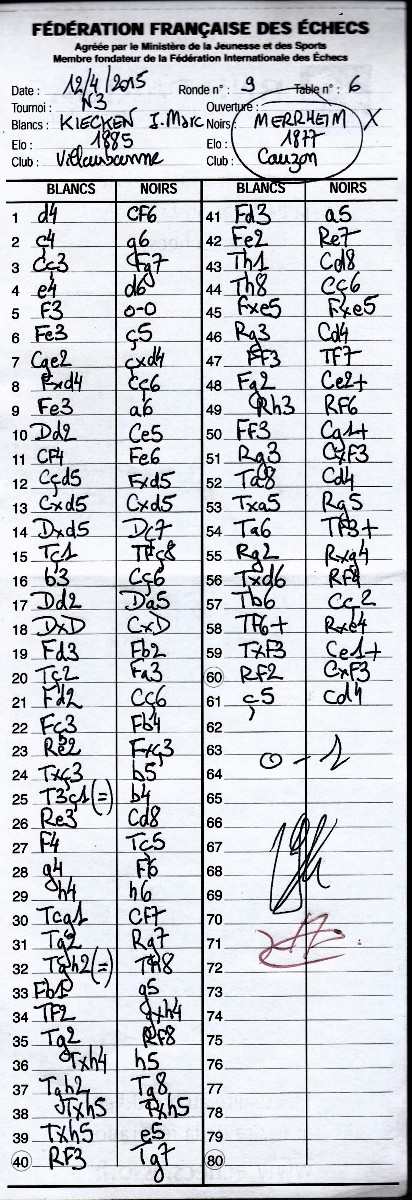 FÉDÉRATION FRANÇAISE DES ÉCHECS
Agréée par le Ministère de la Jeunesse et des Sports
Membre fondateur de la Fédération Internationale des Echecs
Date : 12/4/2015 Ronde n° : 9 Table n° : 6
Tournoi : N3 Ouverture :
Blancs : KIECKEN J.Marc Noirs : MERRHEIM X
Elo : 1885 Elo : 1877
Club : Villeurbanne Club : Cauzon
BLANCS NOIRS BLANCS NOIRS
1 d4 CF6 41 Fd3 a5
2 c4 g6 42 Fe2 Re7
3 Cc3 Fg7 43 Th1 Cd8
4 e4 d6 44 Th8 Cc6
5 F3 0-0 45 Fxe5 Fxe5
6 Fe3 c5 46 Rg3 Cd4
7 Cge2 cxd4 47 FF3 TF7
8 Fxd4 Cc6 48 Fg2 Ce2+
9 Fe3 a6 49 Rh3 RF6
10 Dd2 Ce5 50 FF3 Cg1+
11 CF4 Fe6 51 Rg3 CxF3
12 Ccd5 Fxd5 52 Ta8 Cd4
13 Cxd5 Cxd5 53 Txa5 Rg5
14 Dxd5 Dc7 54 Ta6 TF3+
15 Tc1 TFc8 55 Rg2 Rxg4
16 b3 Cc6 56 Txd6 RF4
17 Dd2 Da5 57 Tb6 Cc2
18 DxD CxD 58 TF6+ Rxe4
19 Fd3 Fb2 59 TxF3 Ce1+
20 Tc2 Fa3 60 RF2 CxF3
21 Fd2 Cc6 61 c5 Cd4
22 Fc3 Fb4 62
23 Re2 Fxc3 63 0-1
24 Txc3 b5 64
25 T3c1(=) b4 65
26 Re3 Cd8 66
27 F4 Tc5 67
28 g4 F6 68
29 h4 h6 69
30 Tcg1 CF7 70
31 Tg2 Rg7 71
32 Tgh2(=) Th8 72
33 Fb1 g5 73
34 TF2 gxh4 74
35 Tg2 RF8 75
36 Txh4 h5 76
37 Tgh2 Tg8 77
38 Txh5 Txh5 78
39 Txh5 e5 79
40 RF3 Tg7 80